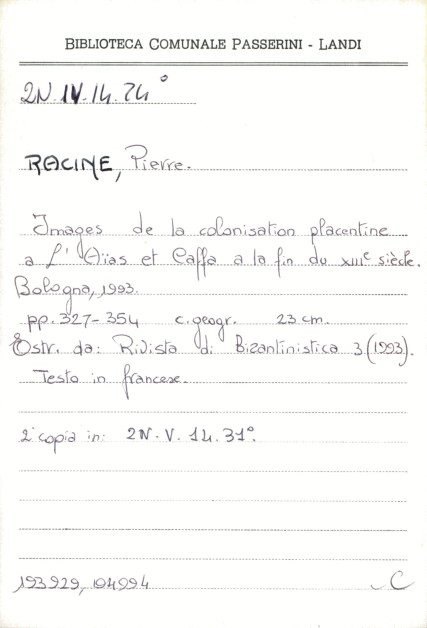 BIBLIOTECA COMUNALE PASSERINI - LANDI
2N.IV.14.24°
RACINE, Pierre.
Images de la colonisation placentine
a L'Aias et Caffa a la fin du XIIIe siècle.
Bologna, 1993.
pp. 327-354 c.geogr. 23 cm.
Estr. da: Rivista di Bizantinistica 3 (1993).
Testo in francese.
2ª copia in: 2N.V.14.31°.
193929, 194994
C